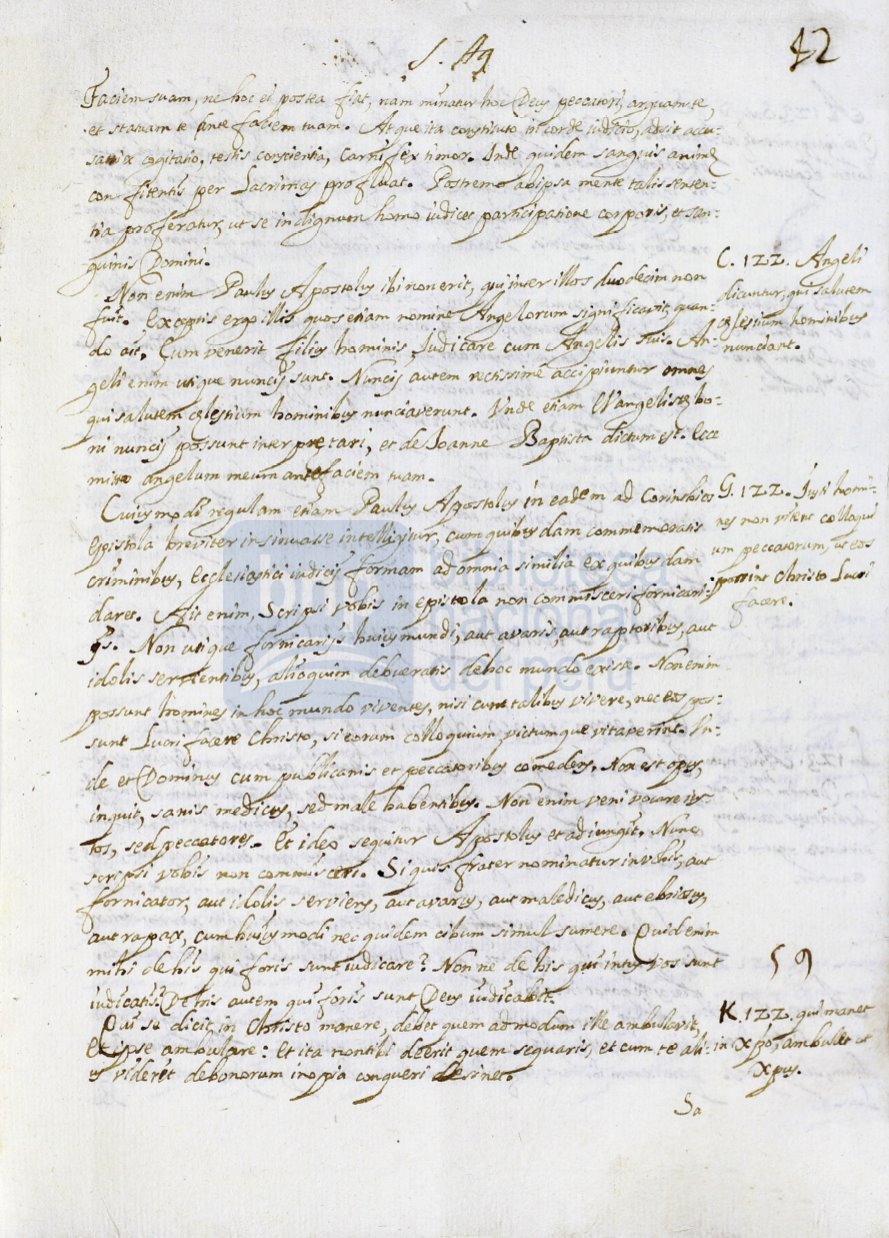 S. Aq
42
Faciem suam, ne hoc ei postea fiat, nam minatur hoc Deus peccatori, arguam te,
et statuam te ante faciem tuam. Atque ita constituto in corde iudicio, adsit accu-
satrix cogitatio, testis conscientia, Carnifex timor. Inde quidem sanguis animę
confitentis per Lacrimas profluat. Postremo ab ipsa mente talis senten-
tia proferatur, ut se indignum homo iudicet participatione corporis, et san-
guinis Domini.
Non enim Paulus Apostolus ibi non erit, qui inter illos duodecim non
fuit. Exceptis ergo illis quos etiam nomine Angelorum significavit, quan-
do ait. Cum venerit filius hominis Iudicare cum Angelis suis. An-
geli enim utique nuncij sunt. Nuncij autem rectissime accipiuntur omnes
qui salutem cęlestium hominibus nunciaverunt. Unde etiam Evangelistę bo-
ni nuncij possunt interpretari, et de Ioanne Baptista dictum est. Ecce
mitto angelum meum ante faciem tuam.
C. 122. Angeli
dicuntur, qui salutem
cęlestium hominibus
nunciant.
Cuiusmodi regulam etiam Paulus Apostolus in eadem ad Corinthios
Epistola breviter insinuasse intelligitur, cum quibusdam commemoratis
criminibus, Ecclesiastici iudicij formam ad omnia similia ex quibusdam
daret. Ait enim, Scripsi vobis in epistola non commisceri fornicari-
js. Non utique fornicarijs huius mundi, aut avaris, aut raptoribus, aut
idolis servientibus, alioquim debueratis de hoc mundo exire. Non enim
possunt homines in hoc mundo viventes, nisi cum talibus vivere, nec eos pos-
sunt Lucri facere Christo, si eorum colloquium, victumque vitaverint. Un-
de et Dominus cum publicanis et peccatoribus comedens. Non est opus,
inquit, sanis medicus, sed male habentibus. Non enim veni vocare ius-
tos, sed peccatores. Et ideo sequitur Apostolus et adiungit. Nunc
scripsi vobis non commisceri. Si quis frater nominatur in vobis, aut
fornicator, aut idolis serviens, aut avarus, aut maledicus, aut ebriosus,
aut rapax, cum huiusmodi nec quidem cibum simul sumere. Quid enim
mihi de his qui foris sunt iudicare? Non ne de his qui intus vos sunt
iudicatis? De his autem qui foris sunt Deus iudicabit.
G. 122. Iusti homi-
nes non vitent colloqui-
um peccatorum, ut eos
possint Christo Lucri
facere.
59
Qui se dicit, in Christo manere, debet quem ad modum ille ambulavit,
Et ipse ambulare: Et ita non tibi deerit quem sequaris, et cum te ali-
us viderit de bonorum inopia conqueri desinet.
K. 122. qui manet
in Xpo, ambulet ut
Xpus.
Sa
biblioteca
nacional
del perú